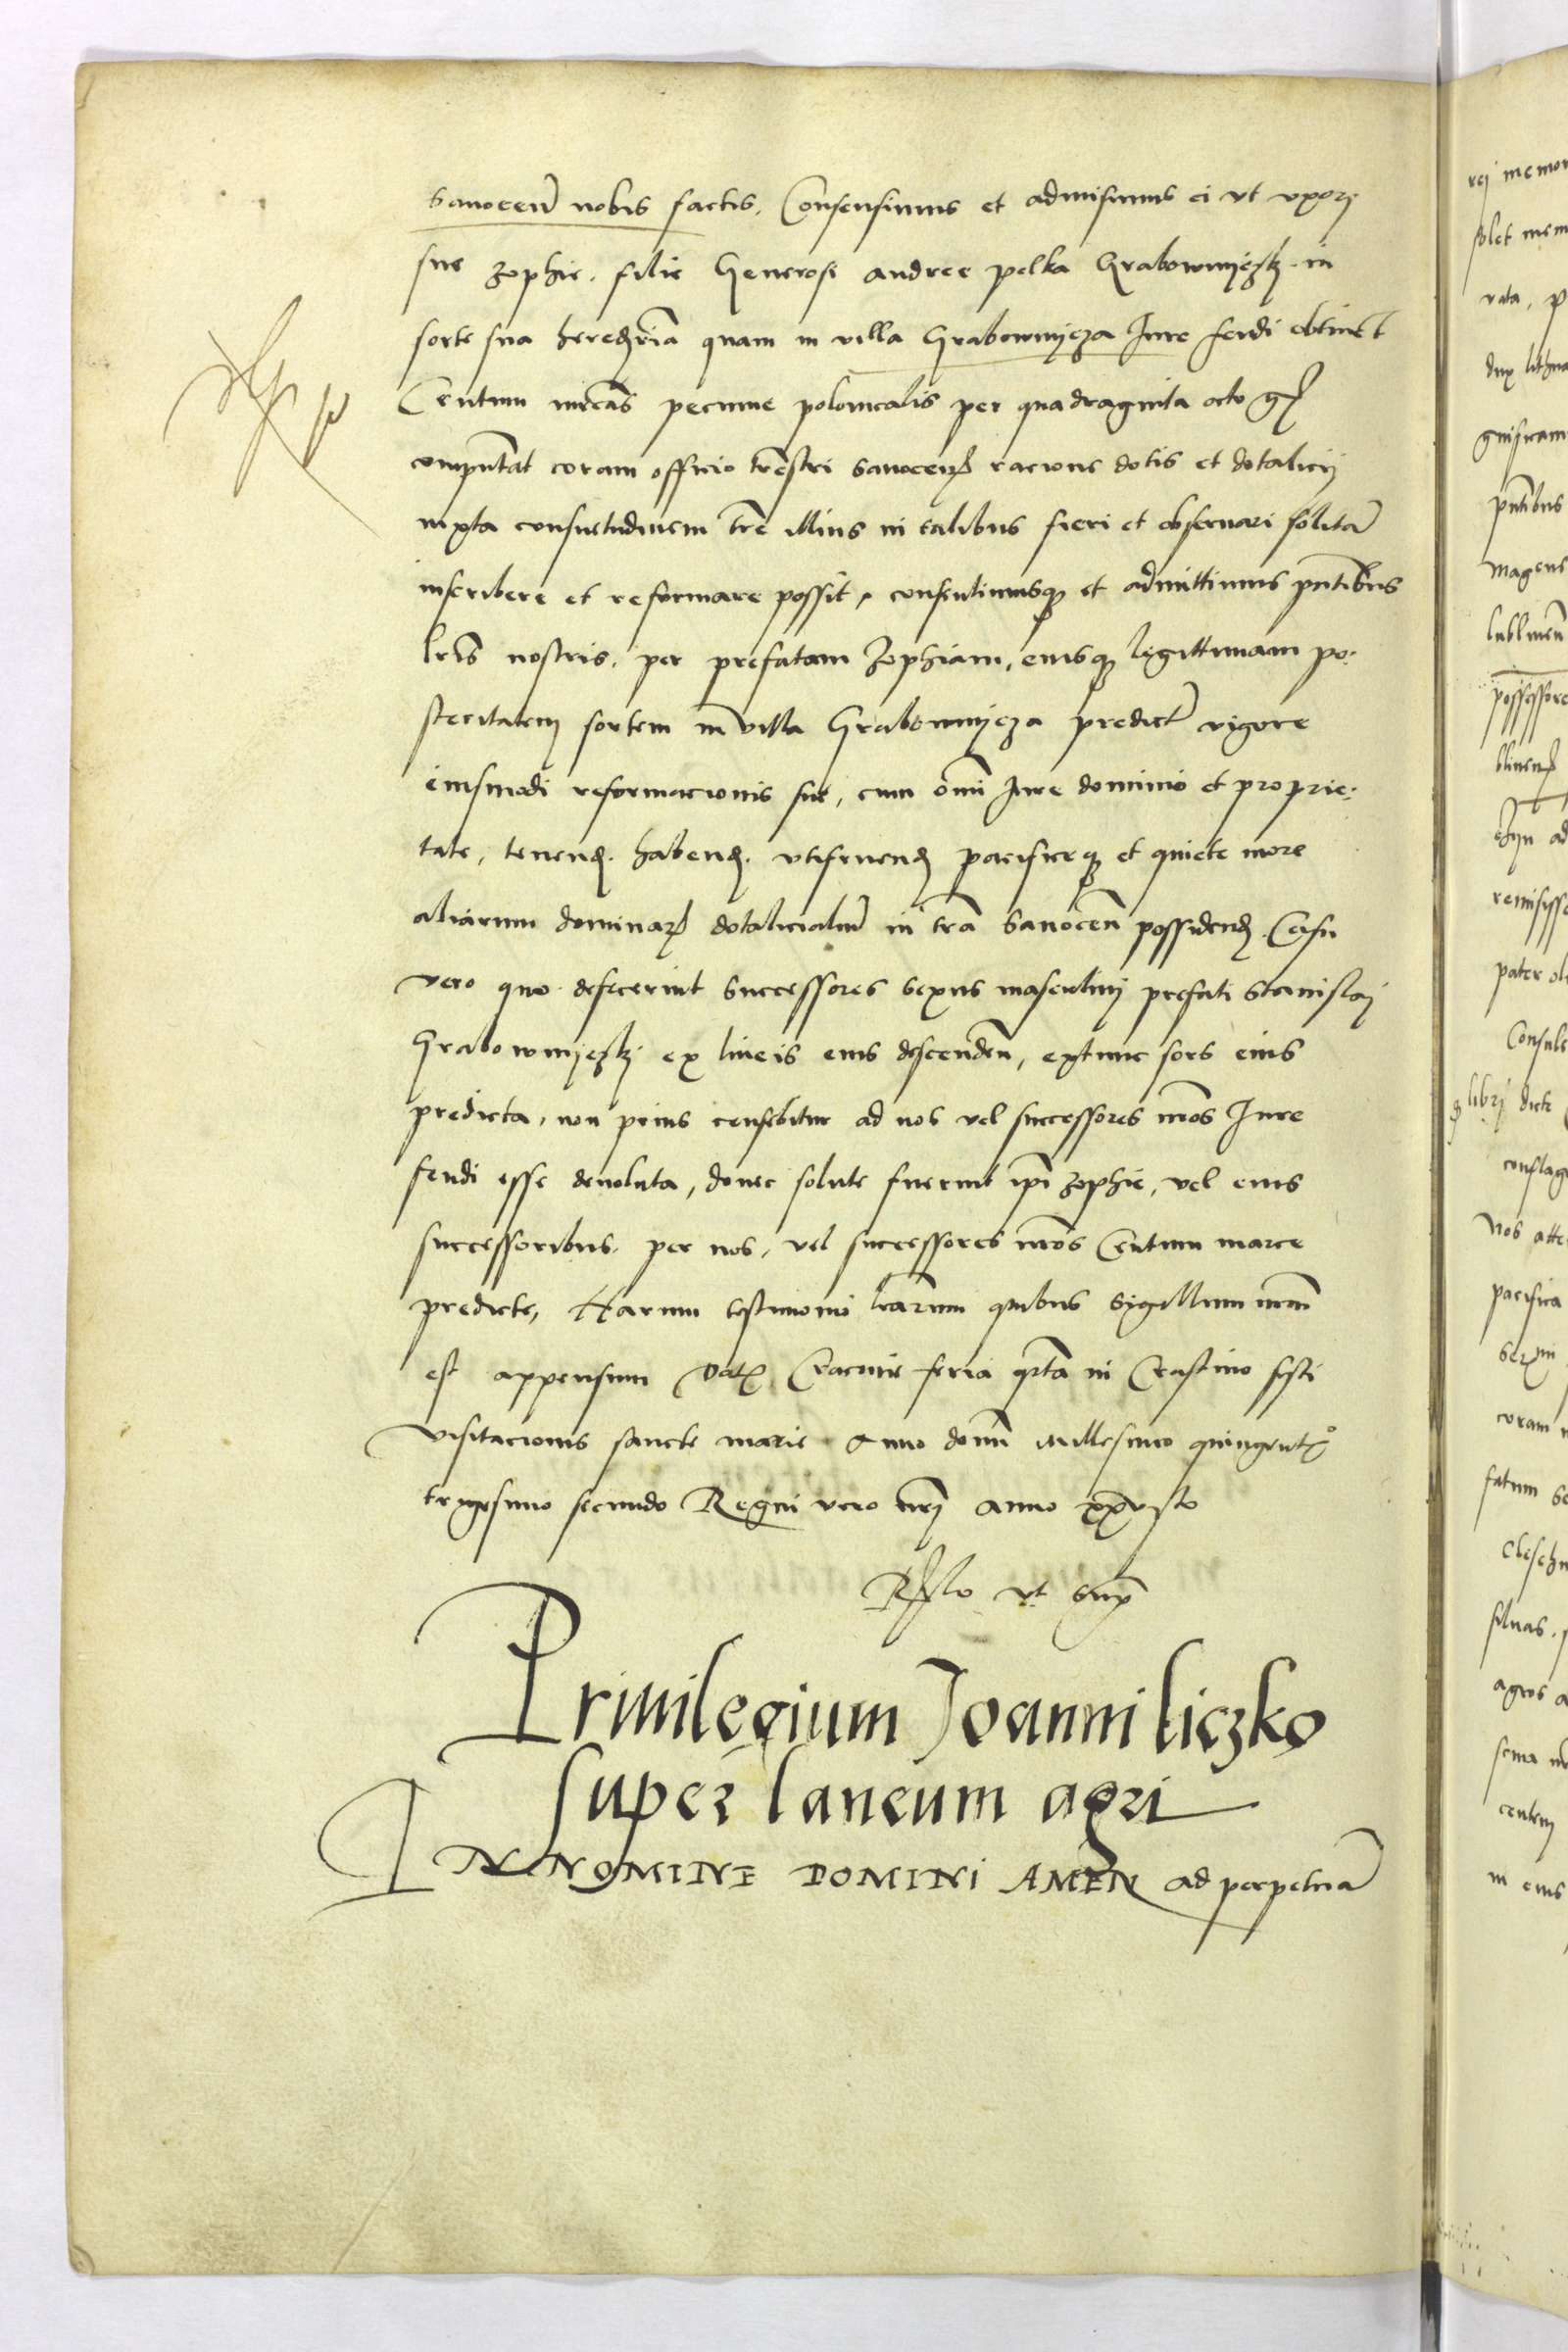 Sanoceñ nobis factis. Consensimus et admisimus ei vt vxori
sue zophie. filie Generosi andree pelka Grabownyczsky. in
sorte sua heredria quam in villa Grabownycza Iure feudi obtinet
Centum mrcas pecunie polonicalis per quadraginta octo gr
computat coram officio trestri Sanoceñ racione dotis et dotalicij
iuxta consuetudinem tre illius in talibus fieri et obseruari solitã
inscribere et reformare possit, consentimusque et admittimus pntibus
lris nostris. per prefatam Zophiam, eiusque legittimam po:
steritatem sortem in villa Grabownycza predict vigore
eiusmodi reformacionis sue, cum omi Iure dominio et proprie:
tate, tenend. habend. vtifruend pacificeque et quiete more
aliarum dominar dotalicialiũ in tra Sanoceñ possidend. Casu
vero quo defecerint successores sexus masculini prefati Stanislaj
Grabownyczsky ex lineis eius descenden, extunc sors eius
predicta, non prius censebitur ad nos vel successores nros Iure
feudi esse deuoluta, donec solute fuerint ipi zophie, vel eius
successoribus. per nos, vel successores nros Centum marce
predicte, Harum testimonio lrarum quibus Sigillum nrm
est appensum Dat Cracouie feria qrta in Crastino festi
Visitacionis sancte marie Anno domi Millesimo quingent°
trigesimo secundo Regni vero nri anno xxvisto
Rlsslo vt sup
Priuilegium Joanni liczko
super laneum agri
IN NOMINE DOMINI AMEN ad perpetuã